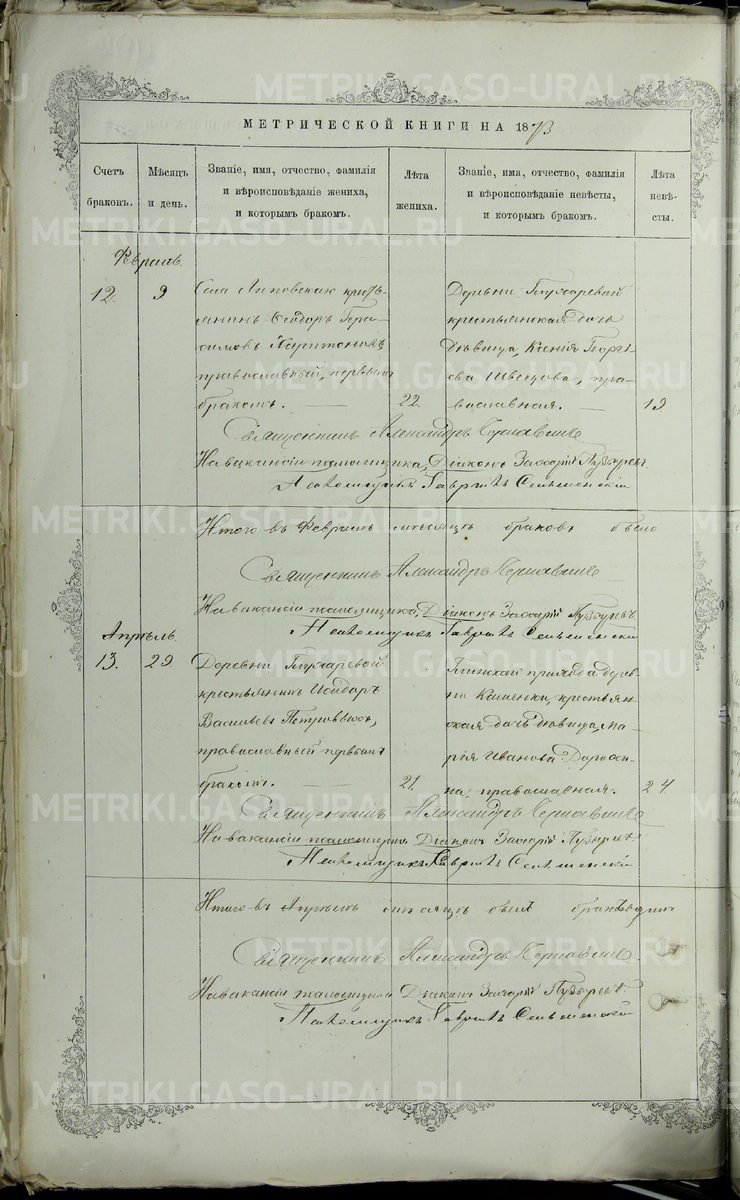 МЕТРИЧЕСКОЙ КНИГИ НА 1873
Счетъ браковъ.
Мѣсяцъ и день.
Званіе, имя, отчество, фамилія
и вѣроисповѣданіе жениха,
и которымъ бракомъ.
Лѣта жениха.
Званіе, имя, отчество, фамилія
и вѣроисповѣданіе невѣсты,
и которымъ бракомъ.
Лѣта невѣсты.
Февраль.
12. 9
Села Липовскаго кресть-
янинъ Ѳедоръ Гера-
симовъ
православный, первымъ
бракомъ. 22.
Деревни Глухаревой
крестьянская дочь
дѣвица, Ксенія Георгі-
ева Швецова, пра-
вославная. 19
Священникъ Александръ
На вакансіи псаломщика, Діаконъ Захарій Пузыревъ
Псаломщикъ Гавріилъ
Итого въ Февралѣ мѣсяцѣ браковъ было
Священникъ Александръ
На вакансіи псаломщика, Діаконъ Захарій Пузыревъ
Псаломщикъ Гавріилъ
Апрѣль.
13. 29
Деревни Глухаревой
крестьянинъ
Васильевъ
православный первымъ
бракомъ. 21.
прихода дерев-
ни Каменки, крестьян-
ская дочь дѣвица, Ма-
рія Иванова
на, православная. 24
Священникъ Александръ
На вакансіи псаломщика Діаконъ Захарій Пузыревъ
Псаломщикъ Гавріилъ
Итого въ Апрѣлѣ мѣсяцѣ былъ бракъ одинъ
Священникъ Александръ
На вакансіи псаломщика Діаконъ Захарій Пузыревъ
Псаломщикъ Гавріилъ
METRIKI.GASO-URAL.RU